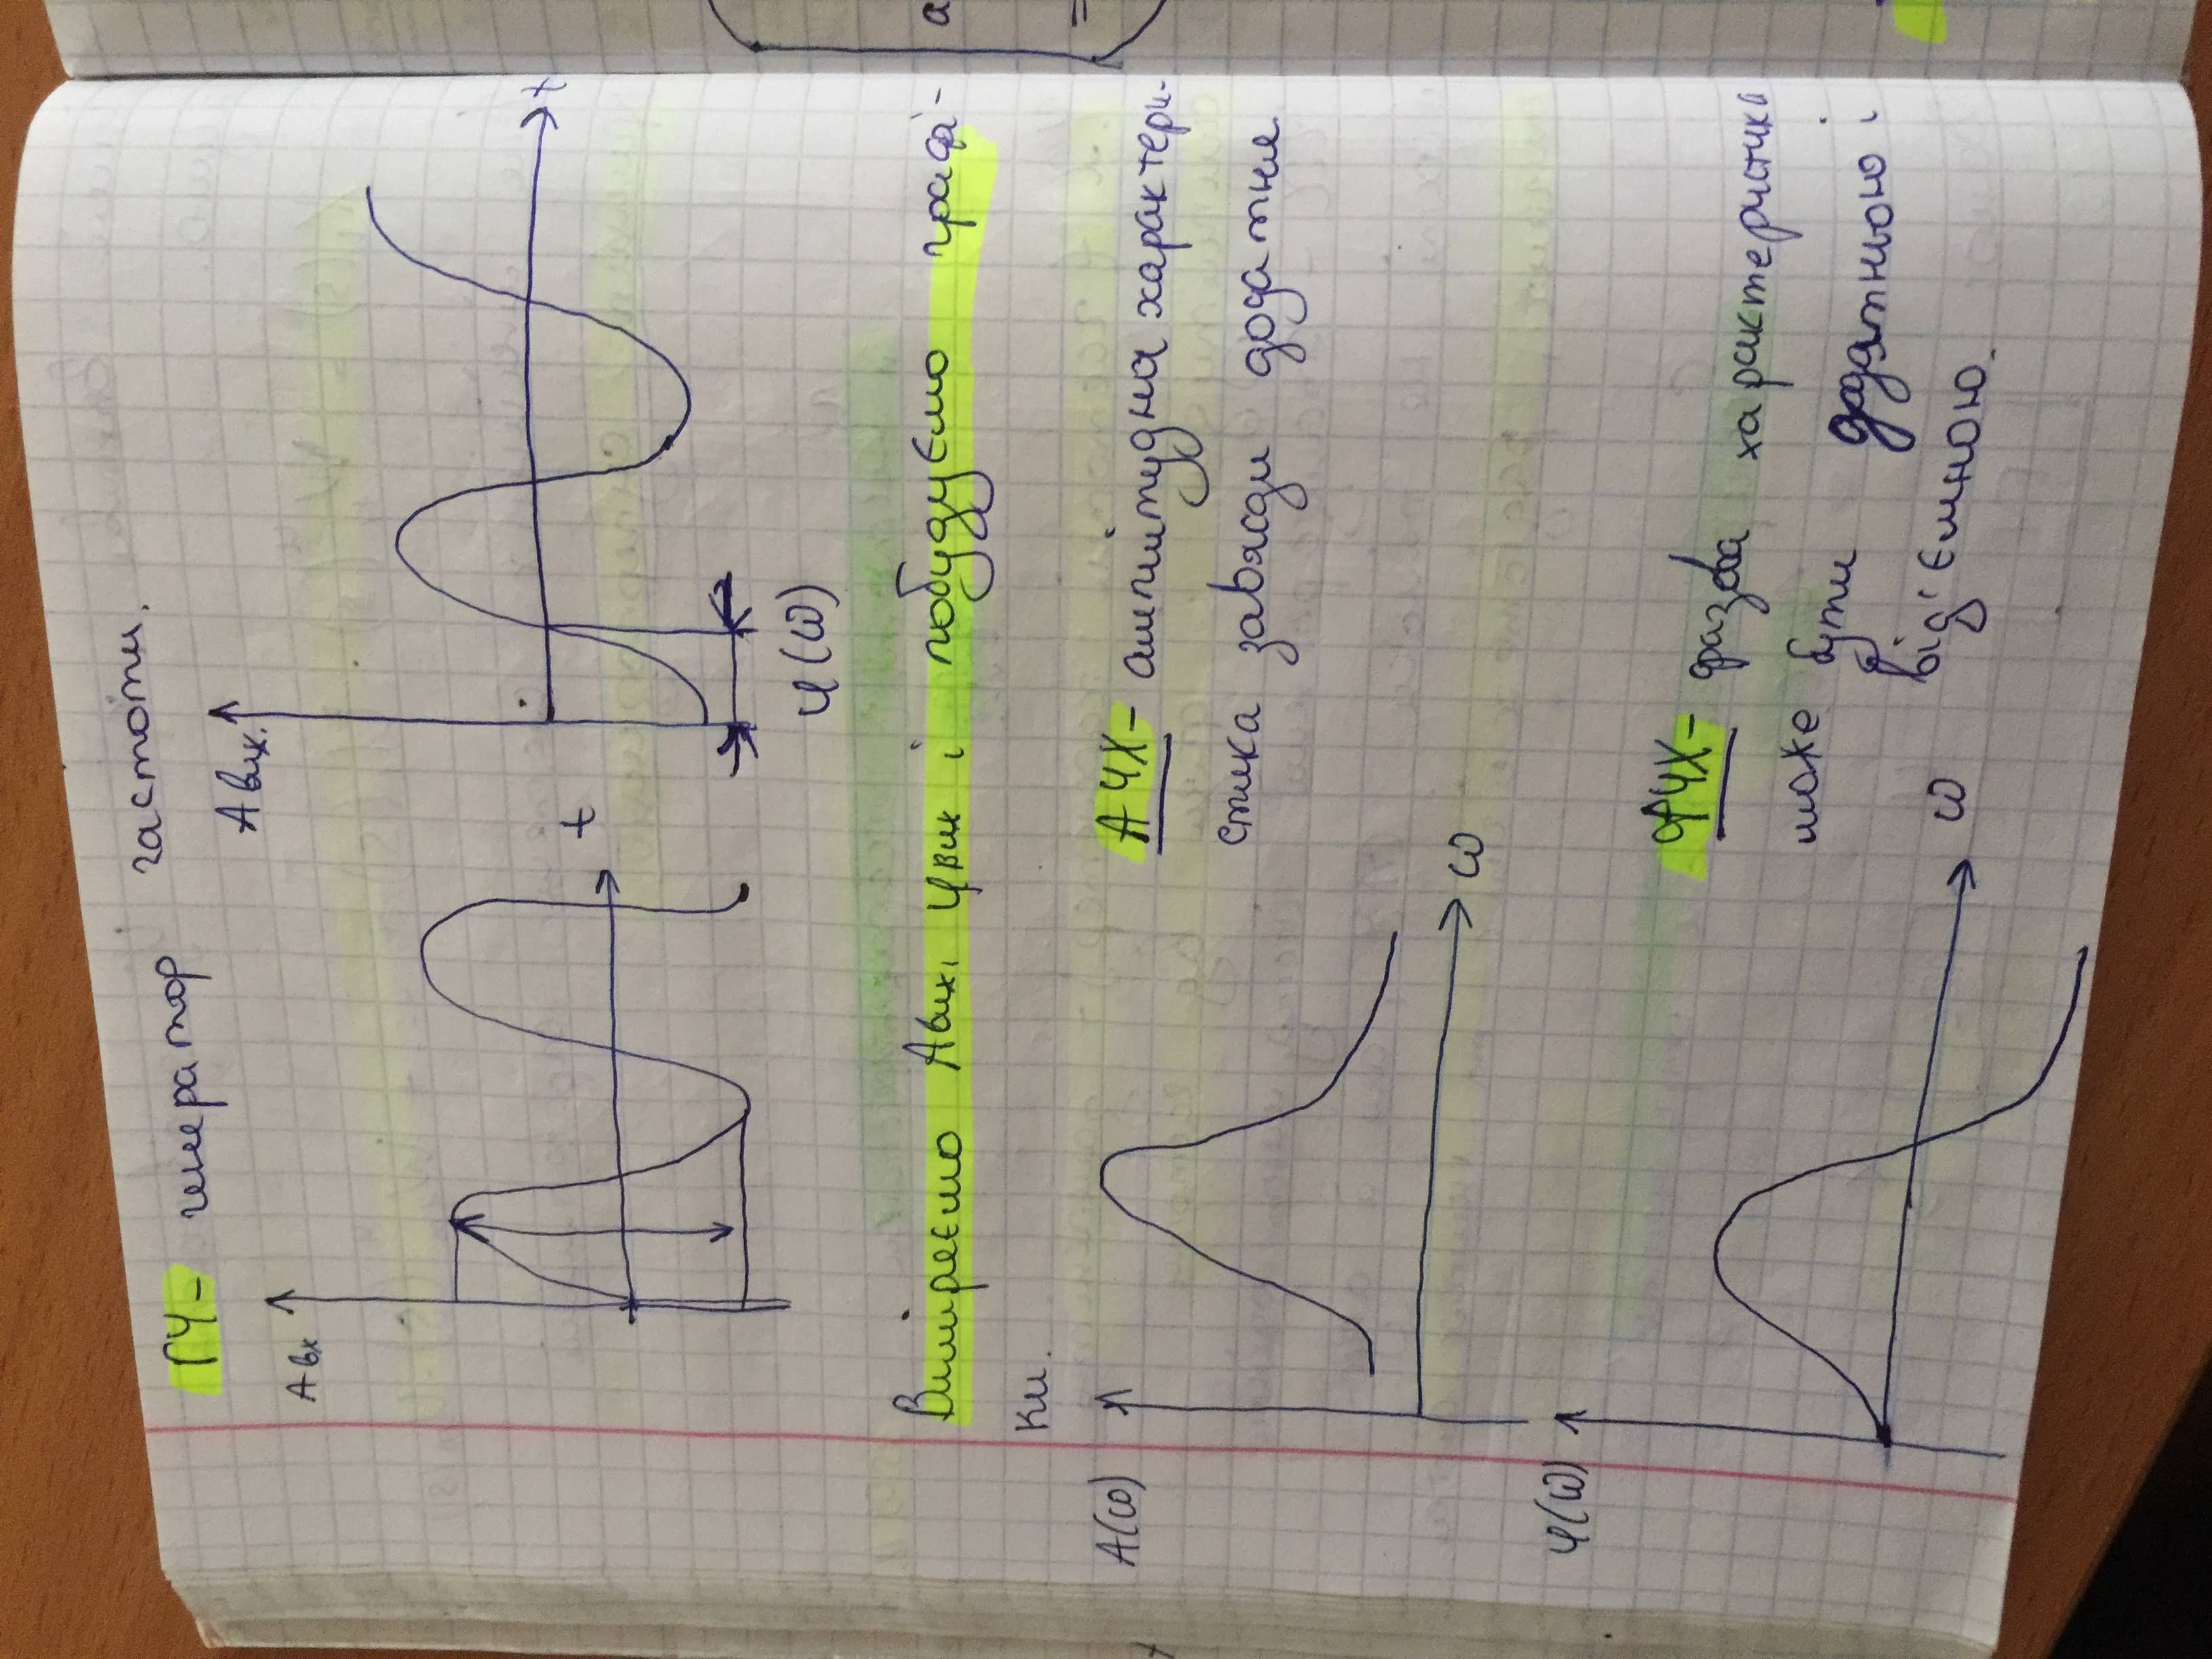 ГЧ- генератор частоти.
Aвх
Aвих.
t
t
φ(ω)
Виміряємо Aвих, φвих і побудуємо графі-
ки.
A(ω)
АЧХ- амплітудна характери-
стика завжди додатня
ω
φ(ω)
ФЧХ- фазова характеристика
може бути додатньою і
від'ємною.
ω